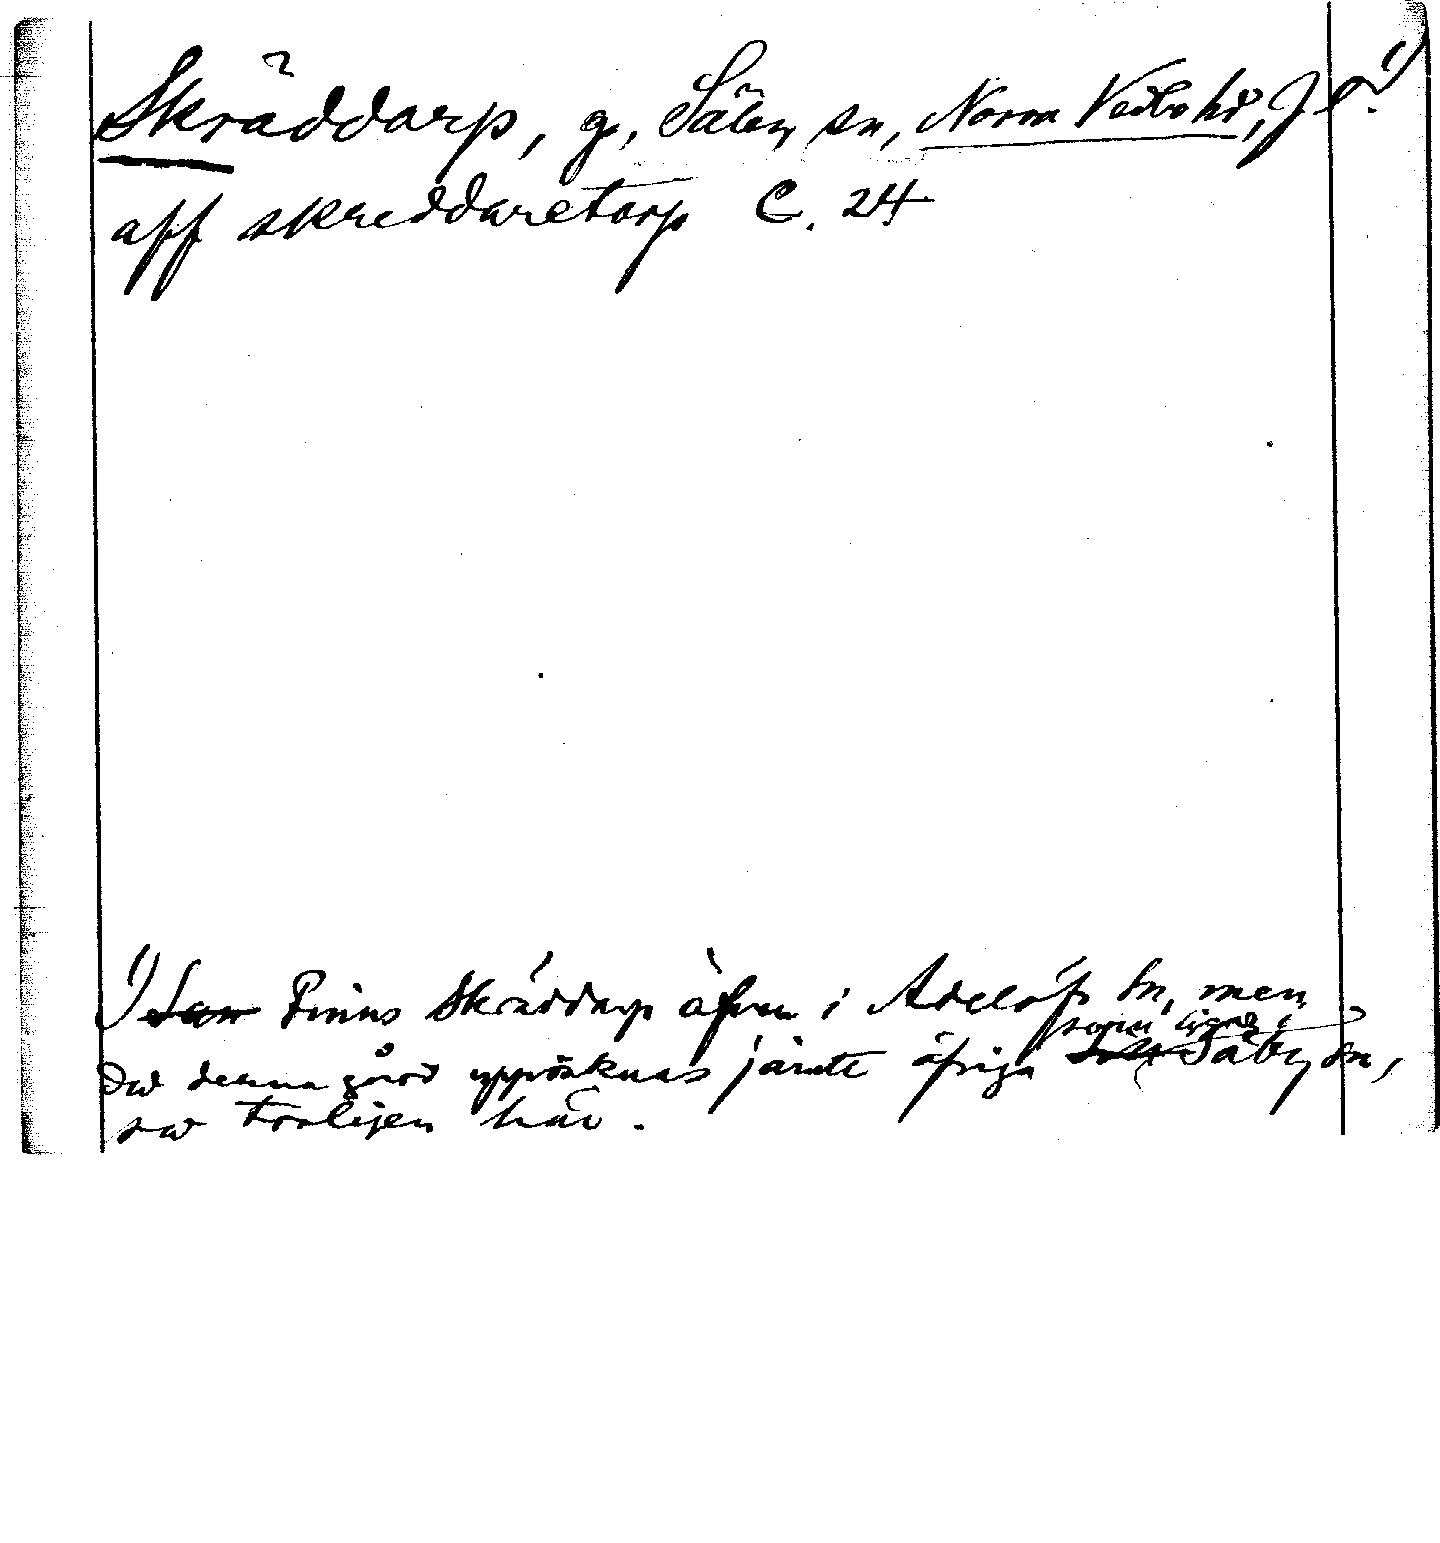 Skräddarp, g, Säby sn, Norra Vedbo hd, J. l. 1)
aff skreddaretorp C. 24
1) Finnes Skräddarp äfven i Adelöfs sn, men
som ligga i
då denna gård uppräknas jämte öfriga Säby sn,
så troligen här.